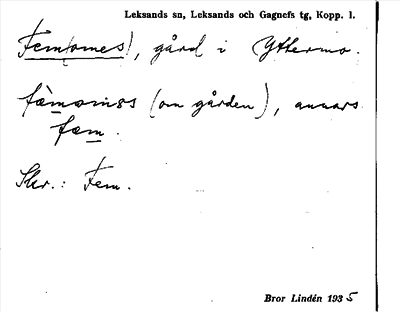 Leksands sn, Leksands och Gagnefs tg, Kopp. l.
Fem(omes), gård i Yttermo.
fæ̀mομss (om gården), annars
fæm.
Skr.: Fem.
Bror Lindén 1935